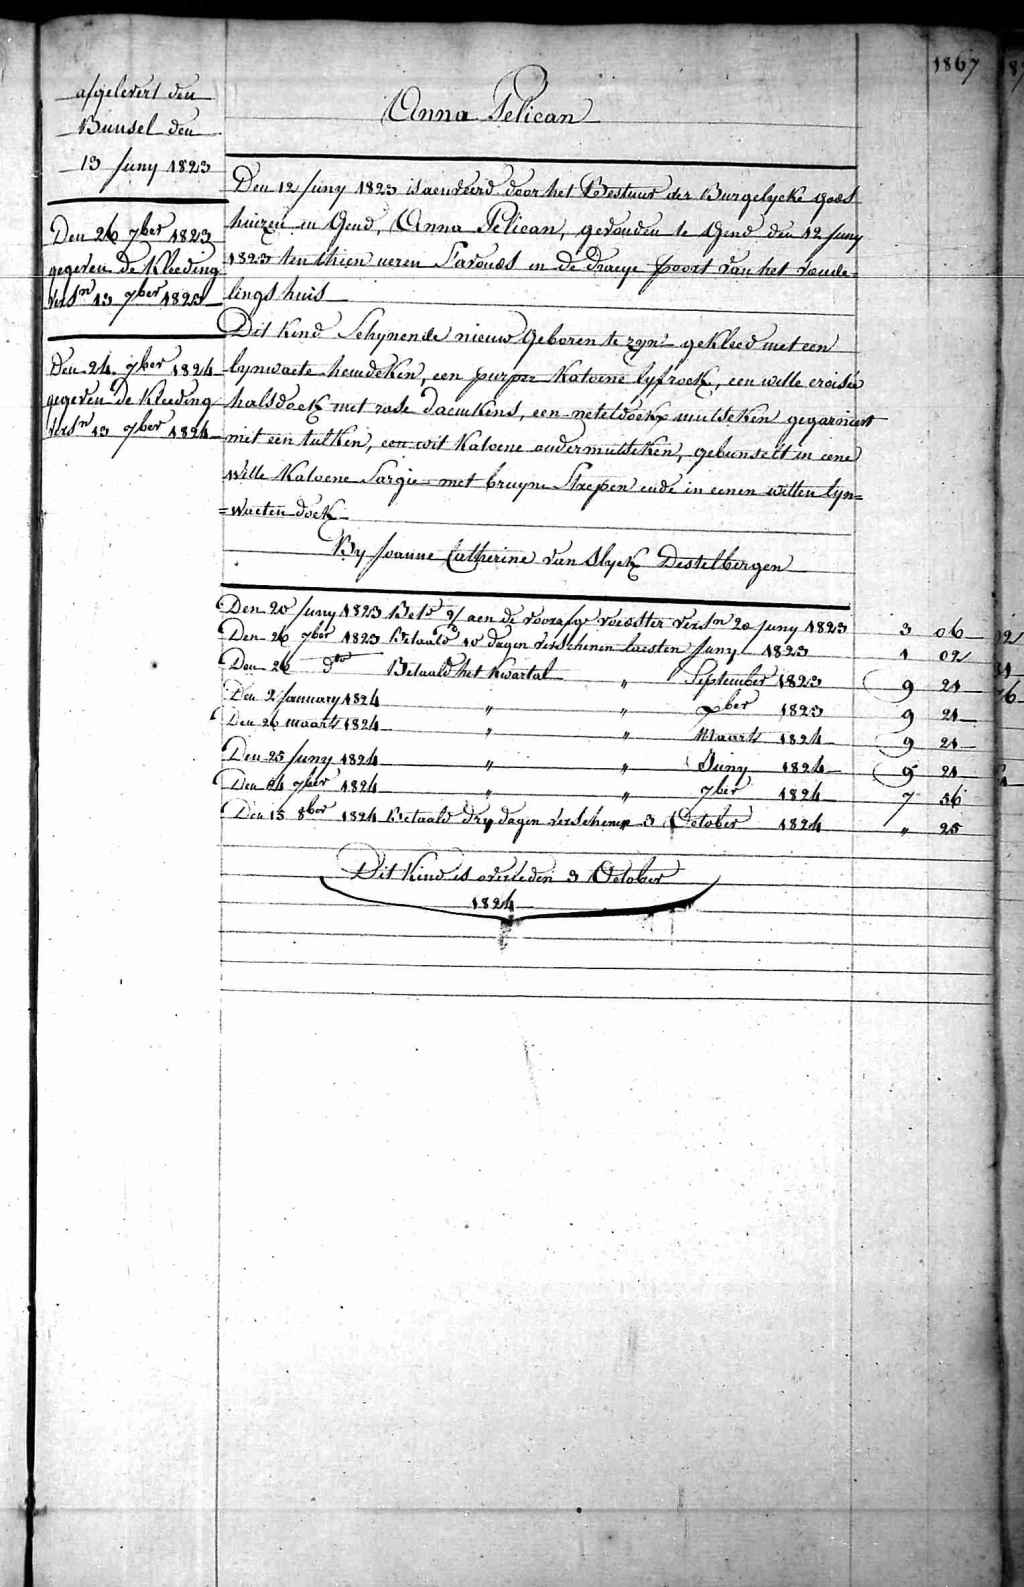 1867
afgelevert den
Bunsel den
13 Juny 1823
Den 26 7ber 1823
gegeven De Kleeding
versn 13 7ber 1823
Den 24 7ber 1824
gegeven De Kleeding
versn 13 7ber 1824
Anna Pelican
Den 12 Juny 1823 is aenveerd door het Bestuur der Burgelycke Gods
huizen in Gend, Anna Pelican, gevonden te Gend den 12 Juny
1823 ten thien ueren S'avonds in de Draeye poort van het vonde-
lings huis
Dit Kind Schynende nieuw Geboren te zyn gekleed met een
lynwaete hemdeken, een purper Katoene lyfrock, een witte croisée
halsdoek met rose Daemkens, een neteldoekx mutseken gegarniert
met een tulken, een wit Katoene ondermutseken, gebunselt in eene
witte Katoene Sargie met bruyne Strepen ende in eenen witten lyn=
=waeten doek
By Joanne Catherine van Slyck Destelbergen
Den 20 Juny 1823 Bet. aen de voorzr voedster versn 20 Juny 1823 3 06
Den 26 7ber 1823 Betaald 10 dagen verschenen laesten Juny 1823 1 02
Den 26 do Betaald het Kwartal " September 1823 9 21
Den 2 January 1824 " " xber 1823 9 21
Den 26 maarts 1824 " " Maarts 1824 9 21
Den 25 Juny 1824 " " Juny 1824 9 21
Den 24 7ber 1824 " " 7ber 1824 7 56
Den 15 8ber 1824 Betaald dry dagen verschenen 3 October 1824 " 25
Dit Kind is overleden 3 October
1824